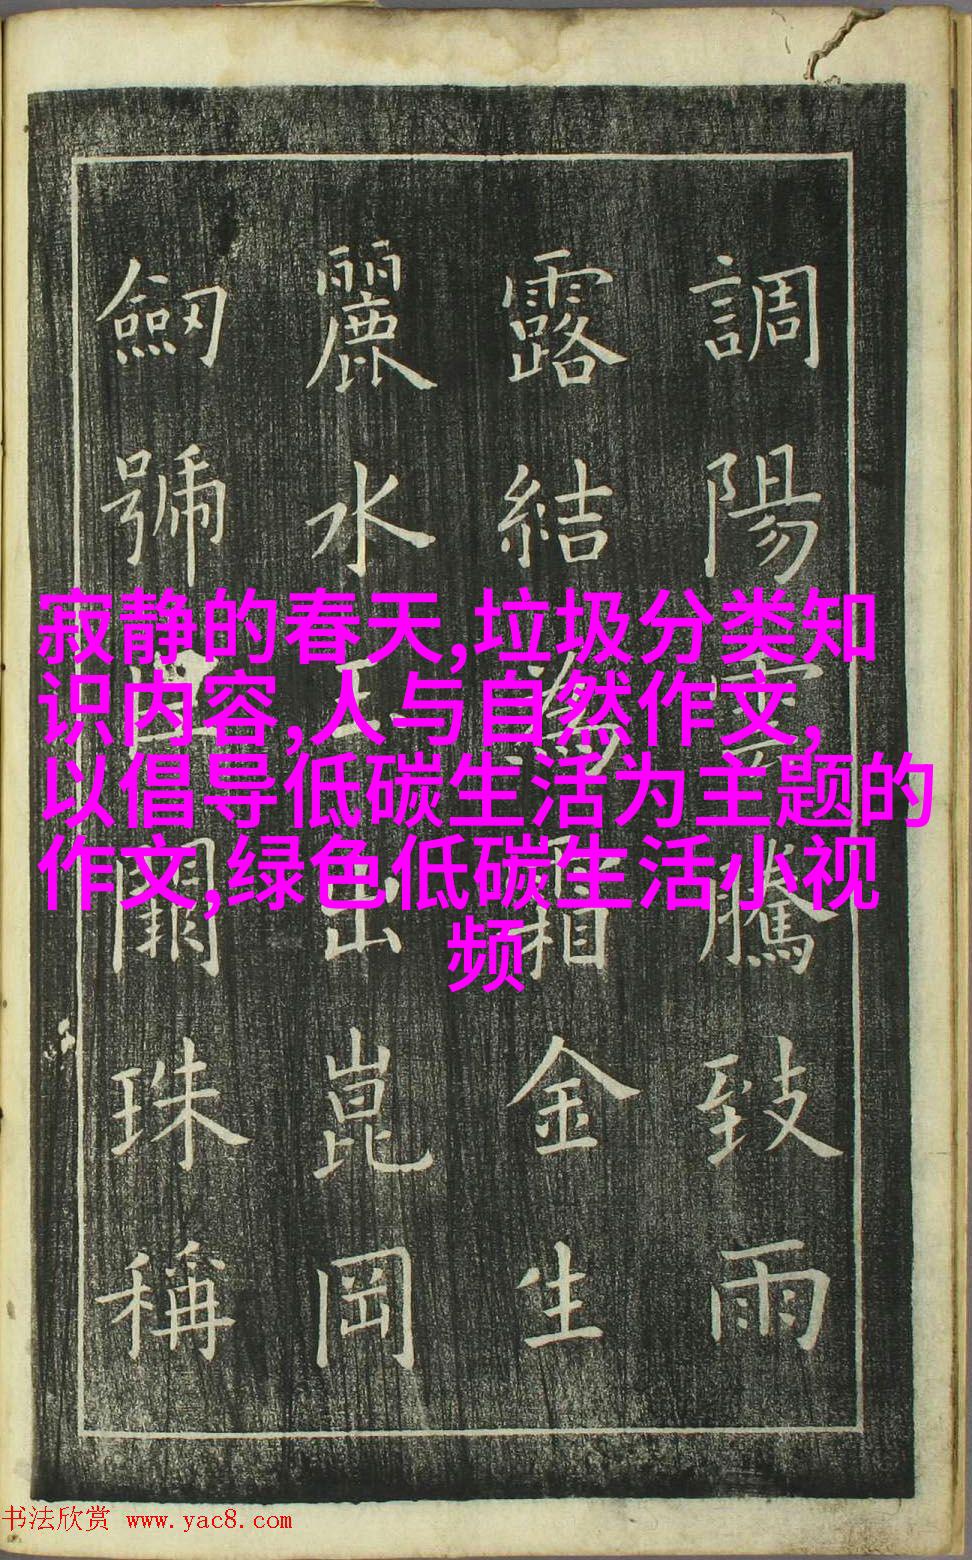 調陽雲騰致雨
露結為霜金生
麗水玉出崑岡
劒號巨闕珠稱
寂静的春天,垃圾分类知
识内容,人与自然作文,
以倡导低碳生活为主题的
作文,绿色低碳生活小视
频
书法欣赏 www.yac8.com